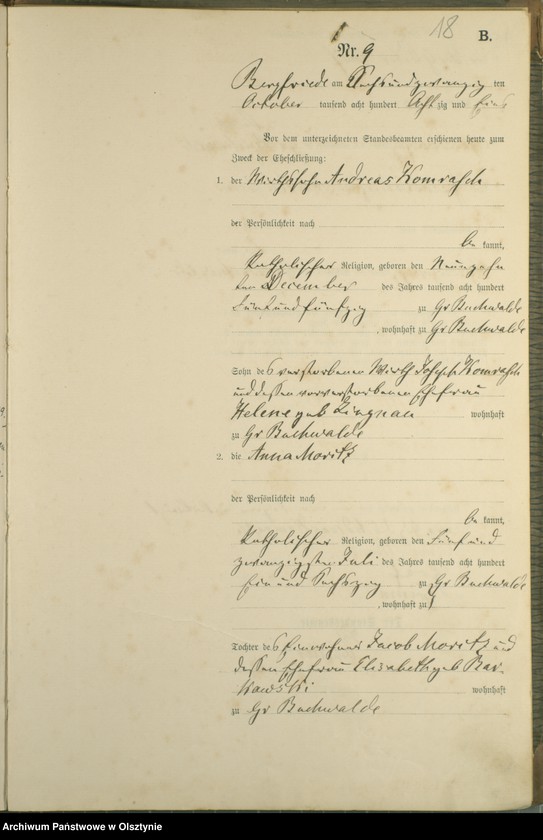 18
B.
Nr. 9
Bergfriede am Sechsundzwanzig ten
October tausend acht hundert Acht zig und Eins
Vor dem unterzeichneten Standesbeamten erschienen heute zum
Zweck der Eheschließung:
1. der Wirthssohn Andreas Komrasch
der Persönlichkeit nach
be kannt,
katholischer Religion, geboren den Neunzehn
ten December des Jahres tausend acht hundert
Fünf und fünfzig zu Gr Buchwalde
, wohnhaft zu Gr Buchwalde
Sohn des verstorbenen Wirth Joseph Komrasch
und dessen vorverstorbenen Ehefrau
Helene geb Zingnau wohnhaft
zu Gr Buchwalde
2. die Anna Moritz
der Persönlichkeit nach
be kannt,
katholischer Religion, geboren den Fünf und
zwanzigsten Juli des Jahres tausend acht hundert
Ein und Sechszig zu Gr Buchwalde
, wohnhaft zu
Tochter des Einwohner Jacob Moritz und
dessen Ehefrau Elisabeth geb Bar-
kawski wohnhaft
zu Gr Buchwalde
Archiwum Państwowe w Olsztynie